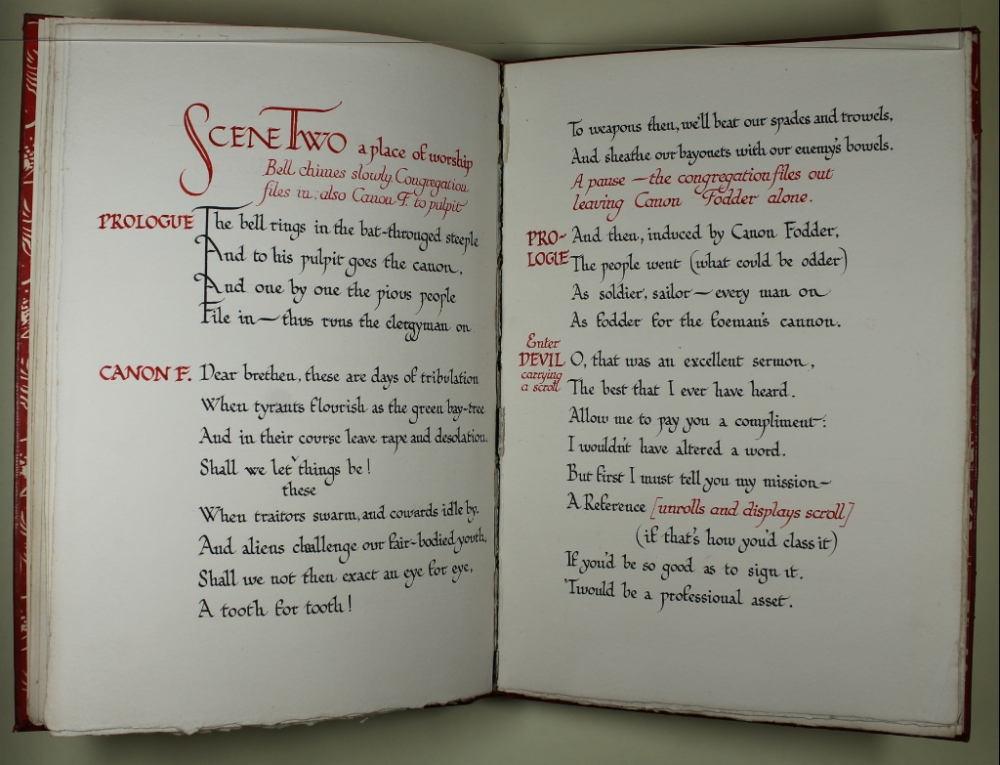 SCENE TWO a place of worship
Bell chimes slowly. Congregation
files in: also Canon F. to pulpit
PROLOGUE The bell rings in the bat-thronged steeple
And to his pulpit goes the canon,
And one by one the pious people
File in — thus runs the clergyman on
CANON F. Dear brethen, these are days of tribulation
When tyrants flourish as the green bay-tree
And in their course leave rape and desolation.
Shall we let ˇ things be!
these
When traitors swarm, and cowards idle by.
And aliens challenge our fair-bodied youth,
Shall we not then exact an eye for eye,
A tooth for tooth!
To weapons then, we'll beat our spades and trowels,
And sheathe our bayonets with our enemy's bowels.
A pause — the congregation files out
leaving Canon Fodder alone.
PRO- And then, induced by Canon Fodder,
LOGUE The people went (what could be odder)
As soldier, sailor — every man on
As fodder for the foeman's cannon.
Enter
DEVIL O, that was an excellent sermon,
carrying
a scroll The best that I ever have heard.
Allow me to pay you a compliment:
I wouldn't have altered a word.
But first I must tell you my mission—
A Reference [unrolls and displays scroll]
(if that's how you'd class it)
If you'd be so good as to sign it.
'Twould be a professional asset.